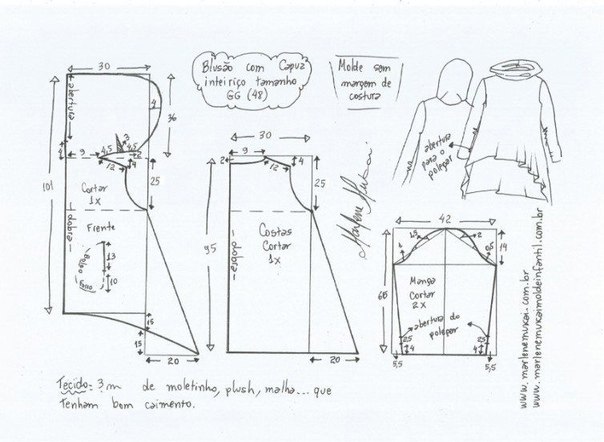 Blusão com Capuz
inteiriço tamanho
GG (48)
Molde sem
margem de
costura
30
abertura
4
36
4
9
4,5
3
4,5
12
4
25
101
Cortar
1x
dobra
Frente
Bolso
13
10
15
15
20
30
2
9
4
12
25
95
Costas
Cortar
1x
dobra
20
Marlene Mukai
abertura
para o
polegar
42
15
2
19
66
Manga
Cortar
2x
abertura do
polegar
25
25
4
4
5,5
5,5
www.marlenemukai.com.br
www.marlenemukaimoldeinfantil.com.br
Tecido: 3m de moletinho, plush, malha... que
Tenham bom caimento.